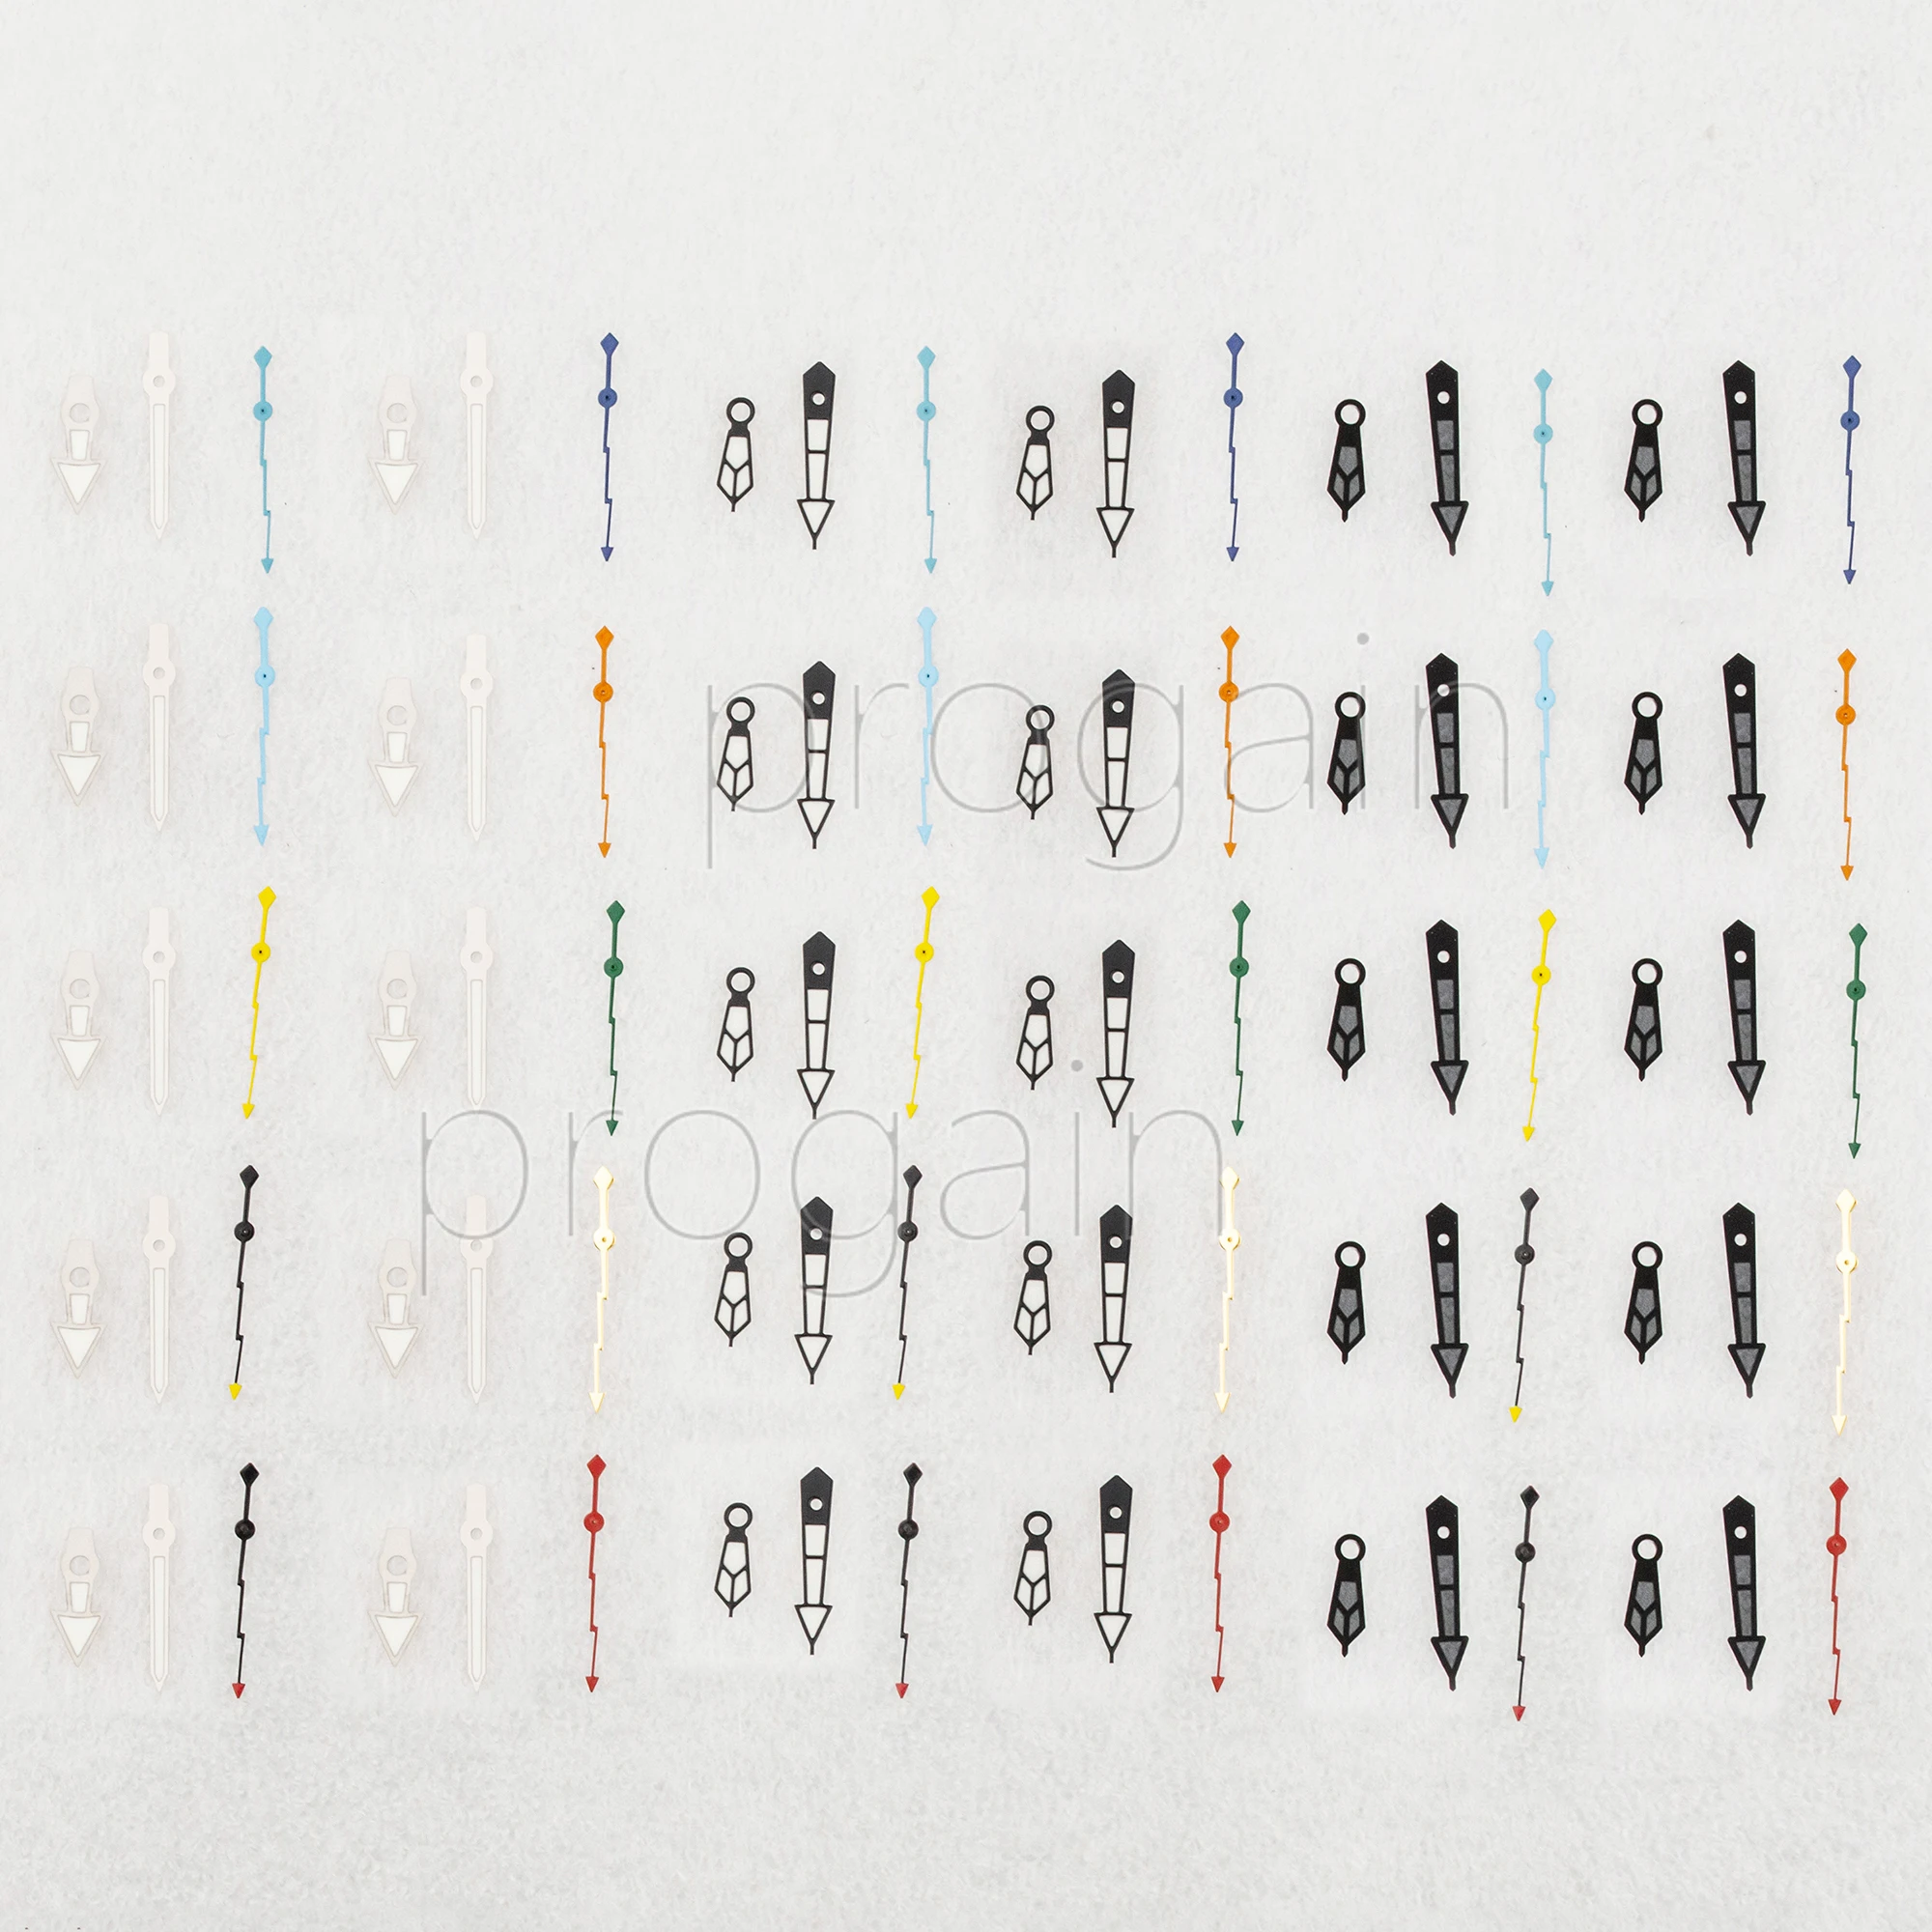 progain
progain